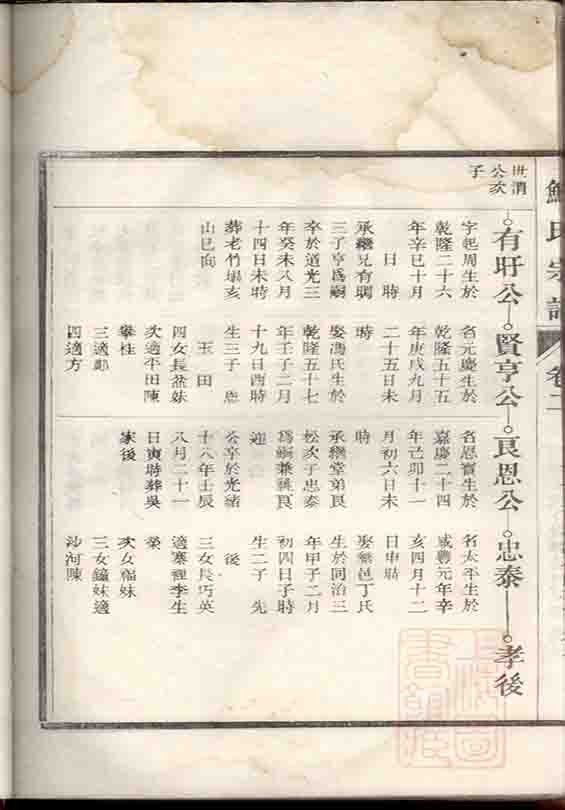 氏宗譜
卷二
世清公次子
有旴公 賢亨公 良恩公 忠泰 孝後
字起周生於
乾隆二十六
年辛巳十月
日時
承繼兄有
三子亨爲嗣
卒於道光三
年癸未八月
十四日未時
葬老竹壩亥
山巳向
名元慶生於
乾隆五十五
年庚戌九月
二十五日未
時
娶馮氏生於
乾隆五十七
年壬子二月
十九日酉時
生三子 恩
玉 田
四女長盆妹
次適平田陳
攀桂
三適鄭
四適方
名恩賓生於
嘉慶二十四
年己卯十一
月初六日未
時
承繼堂弟良
松次子忠泰
爲嗣兼祧良
迎
公卒於光緒
十八年壬辰
八月二十一
日寅時葬吳
家後
名太平生於
咸豐元年辛
亥四月十二
日申時
娶繁邑丁氏
生於同治三
年甲子二月
初四日子時
生二子 先
後
三女長巧英
適寨裡李生
榮
次女福妹
三女鐘妹適
沙河陳
上海圖書館藏